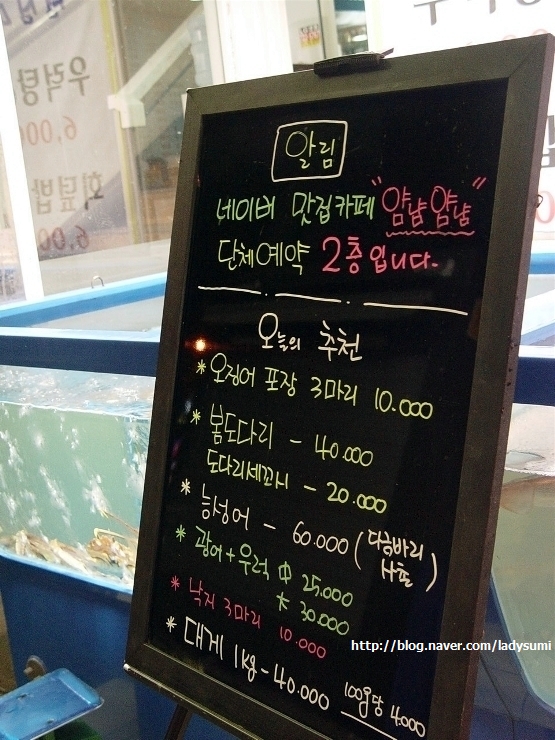 우럭탕
6,00
회덮밥
6,00
알림
네이버 맛집카페 "얌냠얌냠"
단체예약 2층입니다.
오늘의 추천
* 오징어 포장 3마리 10.000
* 봄도다리 - 40.000
도다리세꼬시 - 20.000
* 능성어 - 60.000 (다금바리
사촌)
* 광어+우럭 中 25.000
大 30.000
* 낙지 3마리 10.000
* 대게 1kg - 40.000 100g당 4.000
http://blog.naver.com/ladysumi